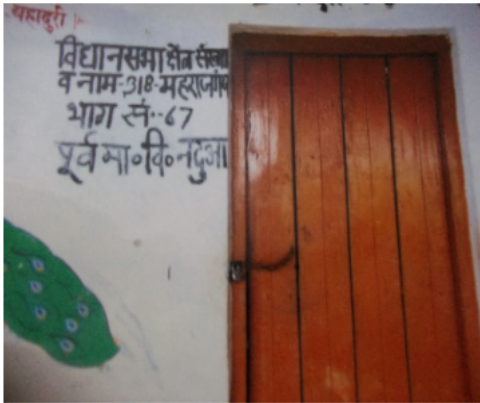 बहादुरी
विधानसभा क्षेत्र संख्या
व नाम-318-महराजगंज
भाग सं०-67
पूर्व मा०वि०नदुआ